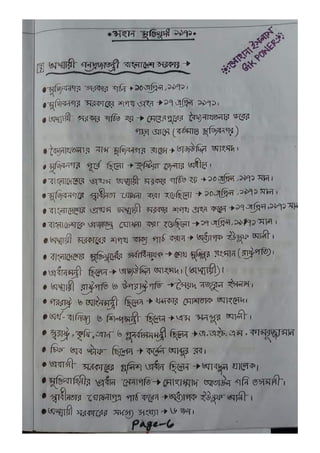 মহান মুক্তিযুদ্ধ ১৯৭১
GK POWER
অস্থায়ী গণপ্রজাতন্ত্রী বাংলাদেশ সরকার →
• মুজিবনগর সরকার গঠন → ১০ এপ্রিল, ১৯৭১।
• মুজিবনগর সরকারের শপথ গ্রহন → ১৭ এপ্রিল ১৯৭১.
• অস্থায়ী সরকার গঠিত হয় → মেহেরপুরের বৈদ্যনাথতলার ভবের
পাড়া গ্রামে (বর্তমান মুজিবনগর)
• বৈদ্যনাথতলার নাম মুজিবনগর রাখেন → তাজউদ্দিন আহমদ।
• মুজিবনগর পূর্বে ছিলো → কুষ্টিয়া জেলার অধীনে।
• বাংলাদেশের প্রথম অস্থায়ী সরকার গঠিত হয় → ১০ এপ্রিল, ১৯৭১ সাল।
• মুজিবনগরে স্বাধীনতা ঘোষনা করা হয়েছিলো → ১০ এপ্রিল, ১৯৭১ সাল.
• বাংলাদেশের প্রথম অস্থায়ী সরকার শপথ গ্রহন করেন → ১৭ এপ্রিল, ১৯৭১ সাল
• বাংলাদেশকে প্রজাতন্ত্র ঘোষনা করা হয়েছিলো → ১৭ এপ্রিল, ১৯৭১ সাল.
• অস্থায়ী সরকারের শপথ বাক্য পাঠ করান → অধ্যাপক ইউসুফ আলী।
• বাংলাদেশের মুক্তিযুদ্ধের সর্বাধিনায়ক → শেখ মুজিবুর রহমান (রাষ্ট্রপতি)।
• প্রধানমন্ত্রী ছিলেন → তাজউদ্দিন আহমদ। (অস্থায়ী)।
• অস্থায়ী রাষ্ট্রপতি ও উপরাষ্ট্রপতি → সৈয়দ নজরুল ইসলাম।
• পররাষ্ট্র ও আইনমন্ত্রী ছিলেন → খন্দকার মোশতাক আহমেদ।
• অর্থ-বানিজ্য ও শিল্পমন্ত্রী ছিলেন → এম মনসুর আলী।
• স্বরাষ্ট্র, কৃষি, ত্রান ও পুনর্বাসনমন্ত্রী ছিলেন → এ. এইচ. এম. কামরুজ্জামান
• চিফ অব স্টাফ ছিলেন → কর্নেল আব্দুর রব।
• প্রবাসী সরকারের পুলিশ প্রধান ছিলেন → আবদুল খালেক।
• মুক্তিবাহিনীর প্রধান সেনাপতি → মোহাম্মদ আতাউল গনি ওসমানী।
• স্বাধীনতার ঘোষনাপত্র পাঠ করেন → অধ্যাপক ইউসুফ আলী।
• অস্থায়ী সরকারের সদস্য সংখ্যা →
Page-6